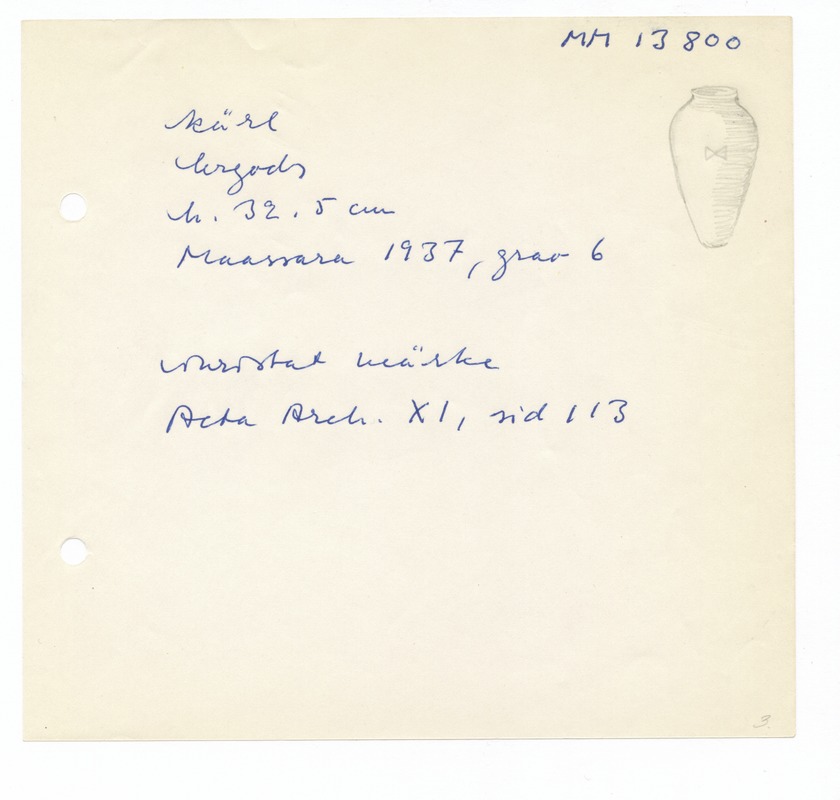 MM 13 800
kärl
lergods
h. 32.5 cm
Maassara 1937, grav 6
inristat märke
Acta Arch. XI, sid 113
3.